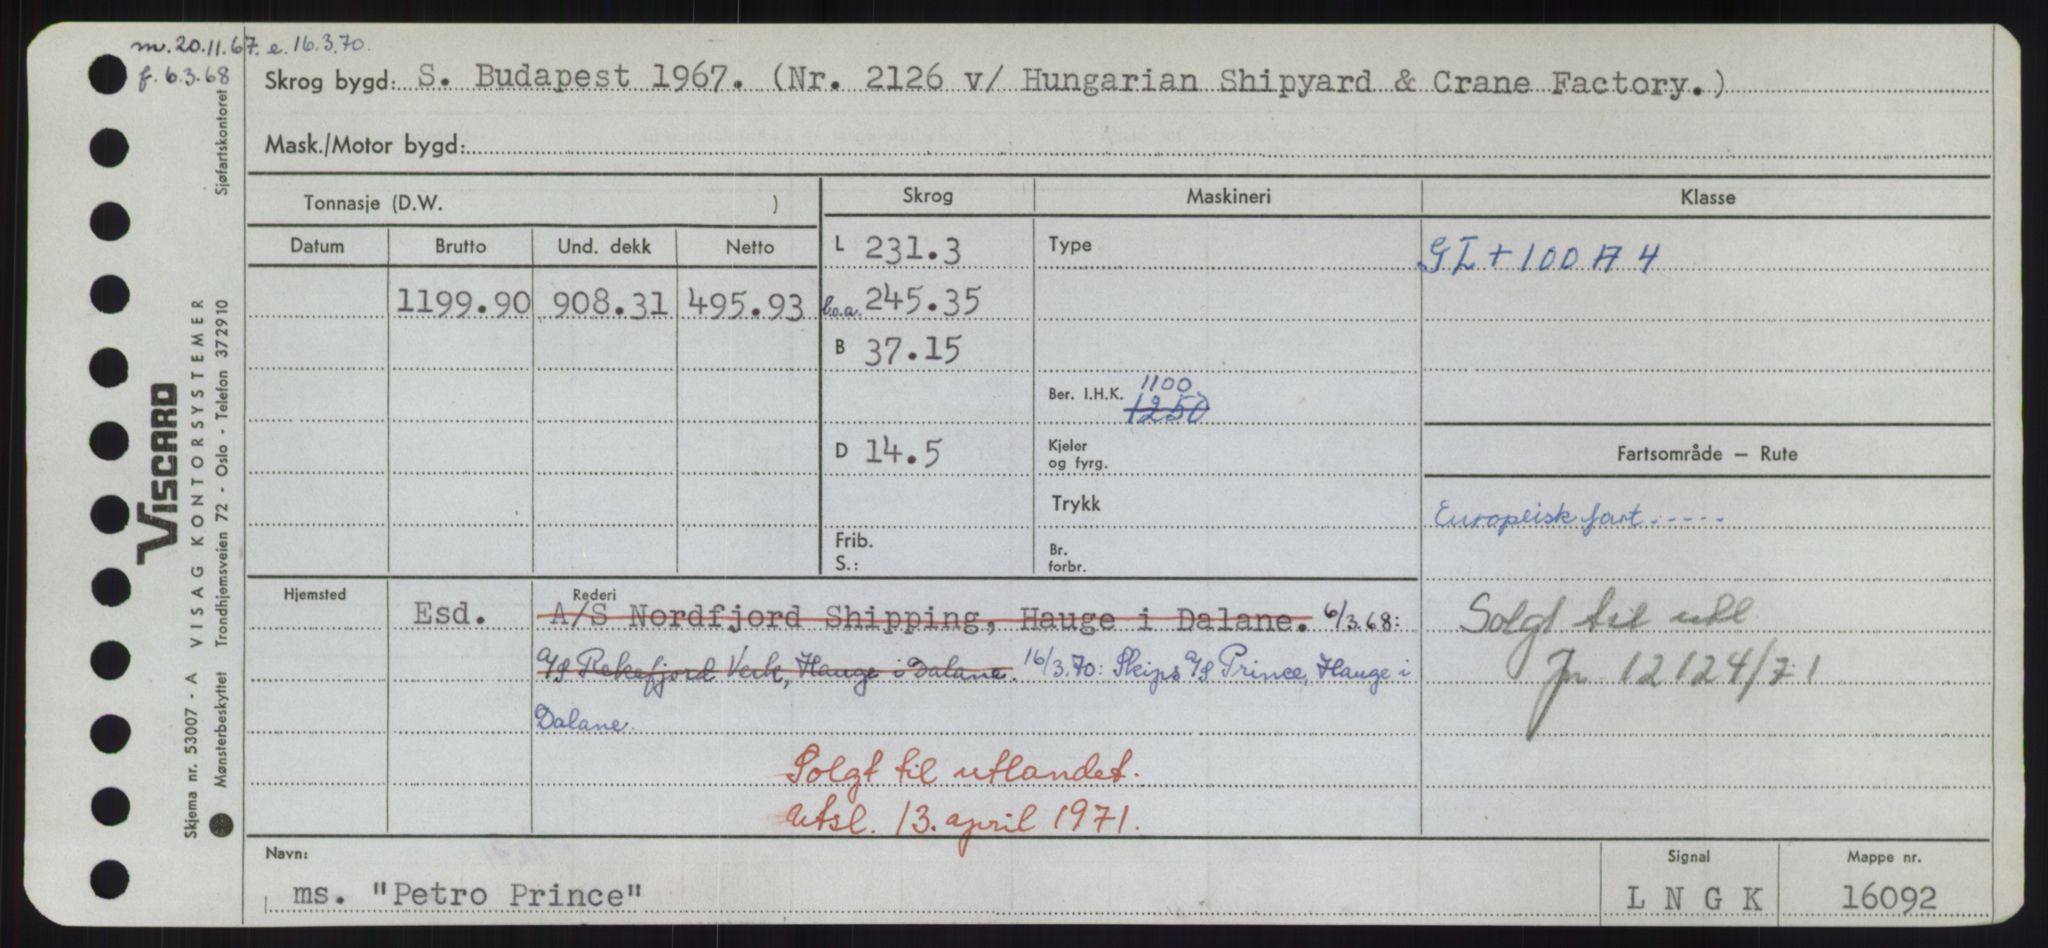 m. 20.11.67. e. 16.3.70.
f. 6.3.68
Skrog bygd: S. Budapest 1967. (Nr. 2126 v/ Hungarian Shipyard & Crane Factory.)
Mask./Motor bygd:
Tonnasje (D.W. )
Skrog
Maskineri
Klasse
Datum Brutto Und. dekk Netto
L 231.3
Type
GL + 100 A 4
1199.90 908.31 495.93
b.o.a. 245.35
B 37.15
Ber. I.H.K. 1100
1250
D 14.5
Kjeler
og fyrg.
Fartsområde – Rute
Trykk
Europeisk fart.....
Frib.
S.:
Br.
forbr.
Hjemsted
Esd.
Rederi
A/S Nordfjord Shipping, Hauge i Dalane. 6/3.68:
A/S Rekefjord Verk, Hauge i Dalane. 16/3.70: Skips A/S Prince, Hauge i
Dalane.
Solgt til utl
Jn 12124/71
Solgt til utlandet.
Utsl. 13. april 1971.
Navn:
ms. "Petro Prince"
Signal
L N G K
Mappe nr.
16092
VISCARD
Skjema nr. 53007 - A VISAG KONTORSYSTEMER
Mønsterbeskyttet Trondhjemsveien 72 - Oslo - Telefon 372910 Sjøfartskontoret